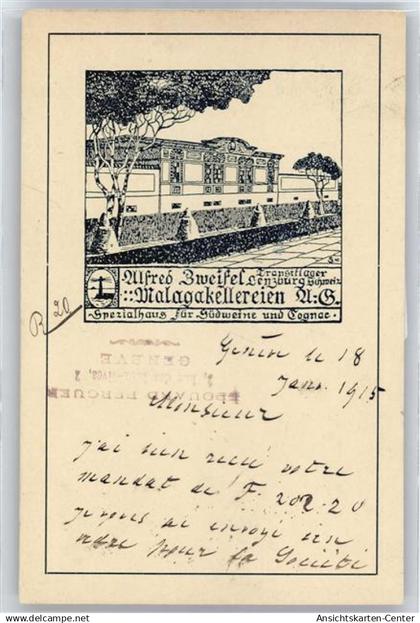 Alfred Zweifel Transitlager
Lenzburg Schweiz
::Malagakellereien A:G.
·Spezialhaus für Südweine und Cognac·
R 20
Genève le 18
Janv. 1915
EDOUARD BERGUER
GENÈVE
Monsieur
j'ai bien reçu votre
mandat de F. 202.20
je vous ai envoyé un
notre pour la Société
Ansichtskarten-Center